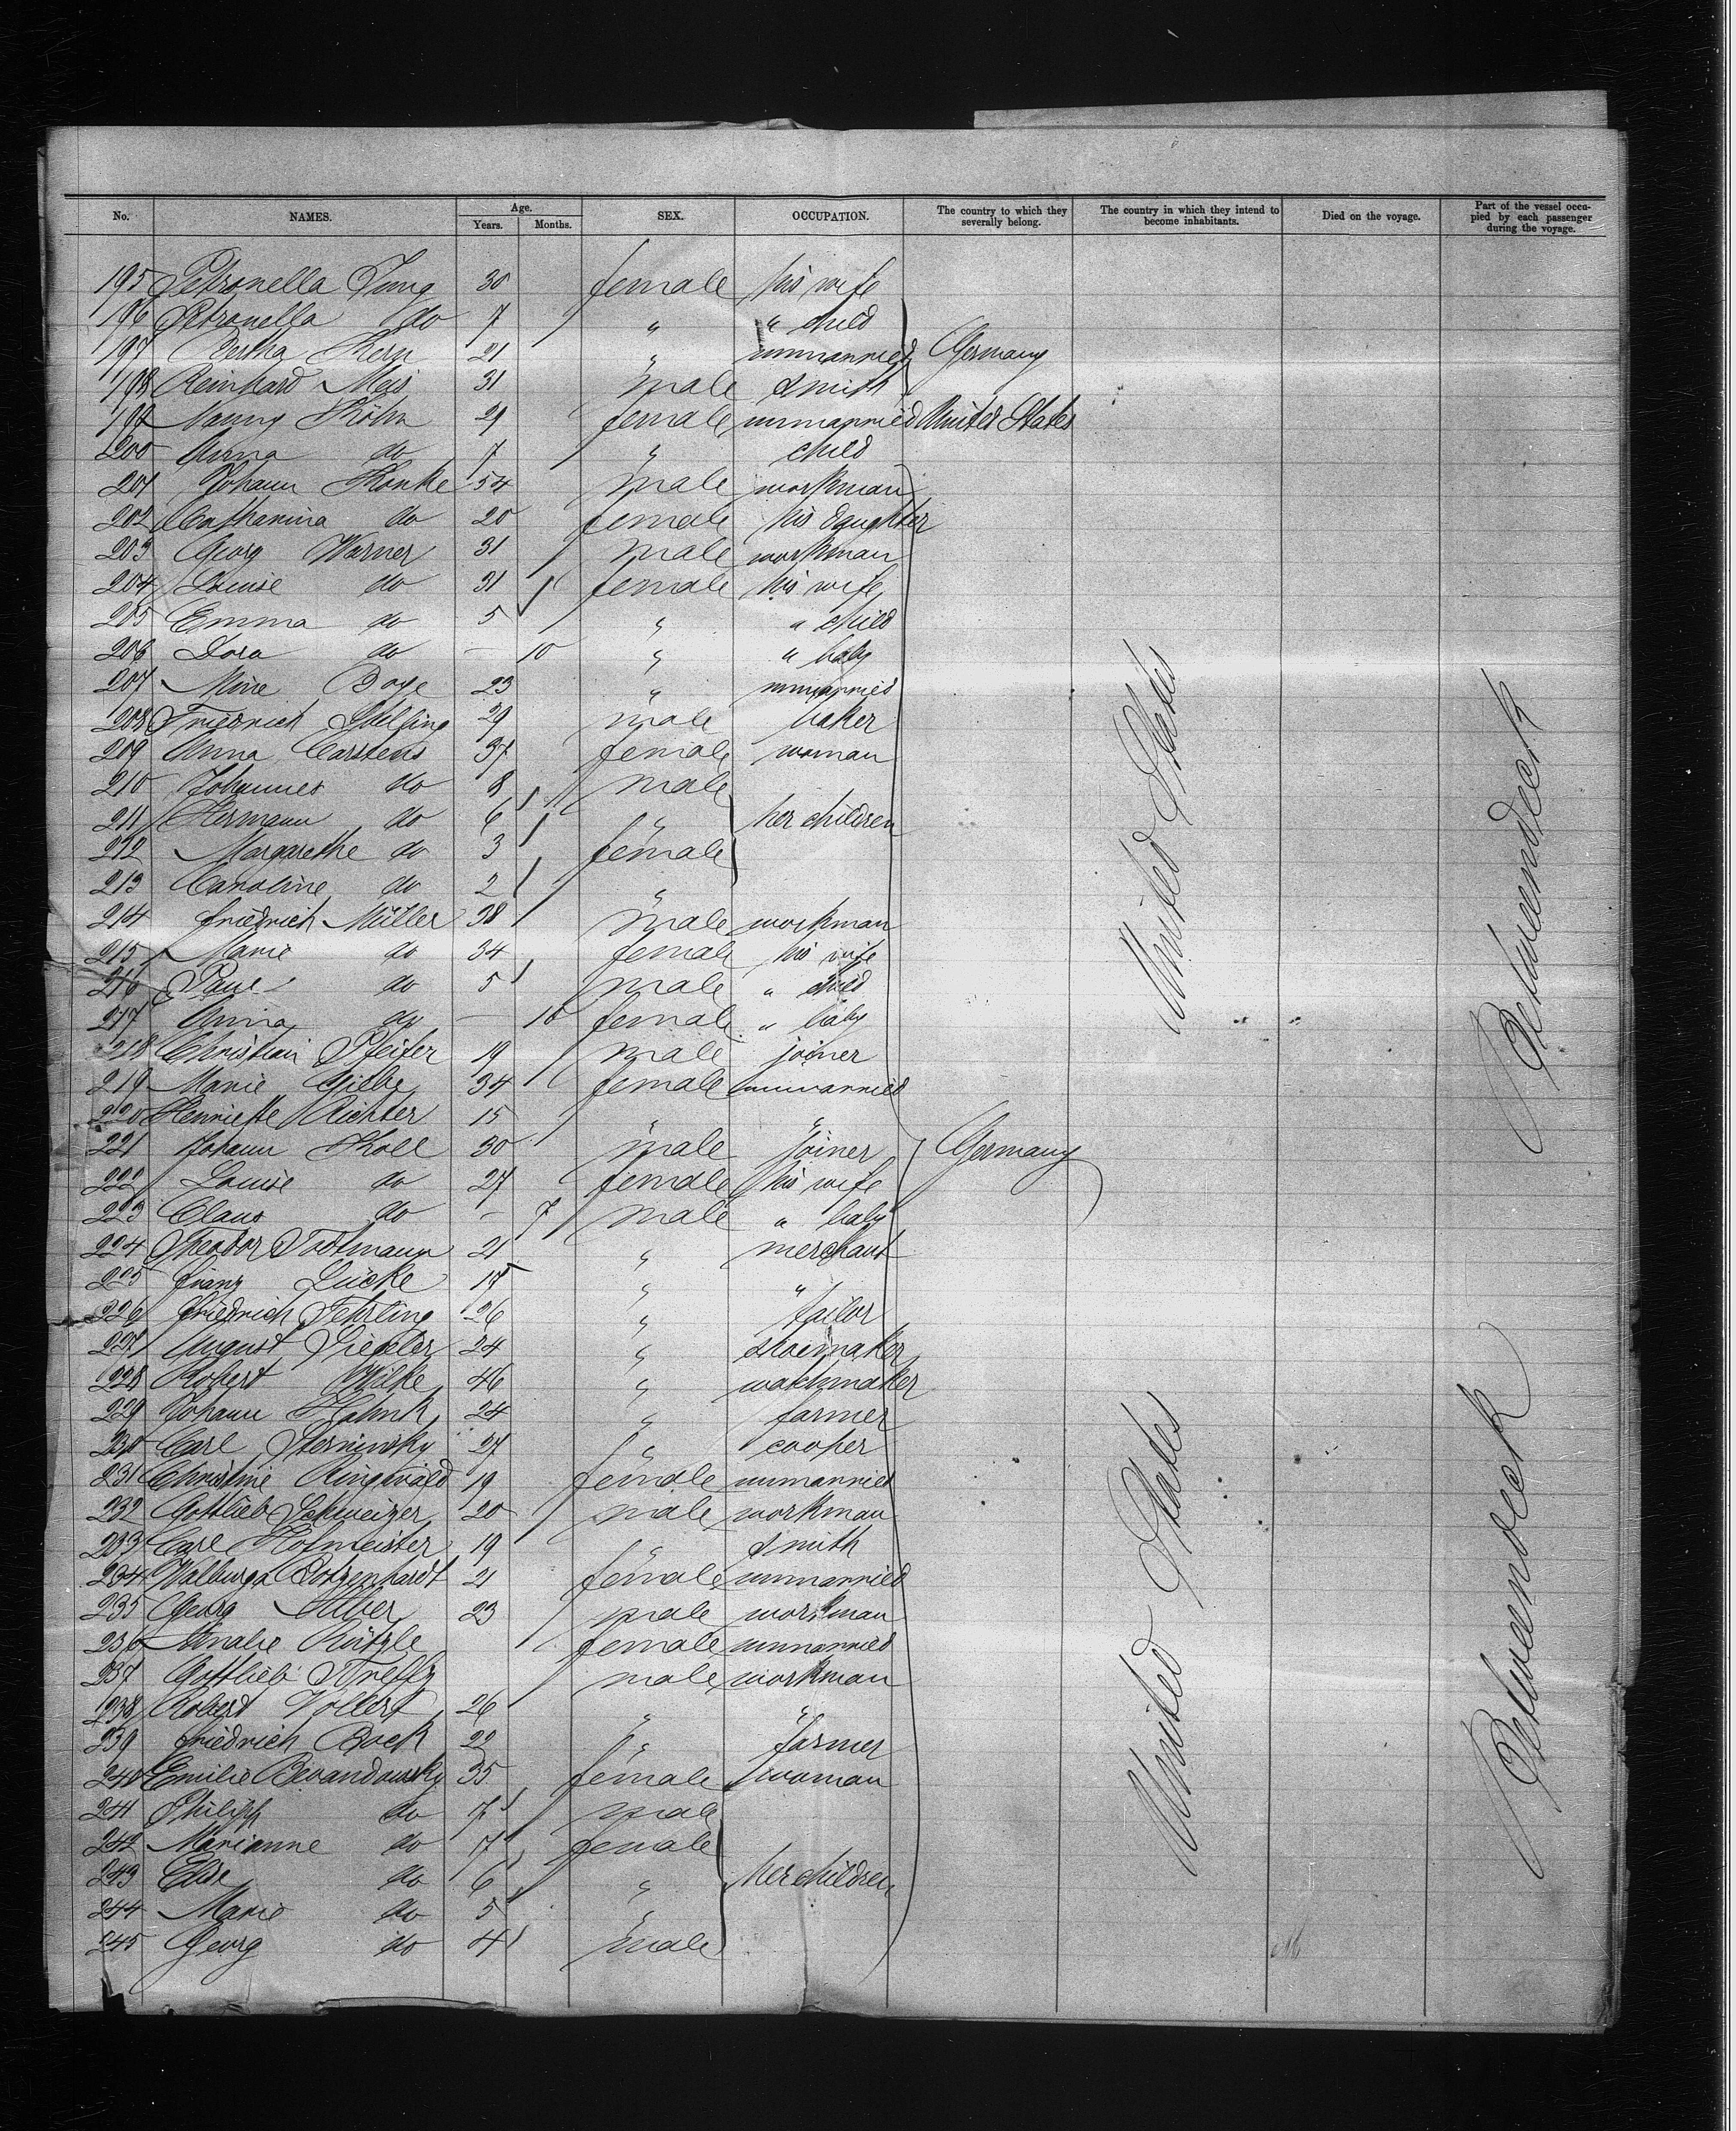 No. NAMES. Age. Years. Months. SEX. OCCUPATION. The country to which they severally belong. The country in which they intend to become inhabitants. Died on the voyage. Part of the vessel occupied by each passenger during the voyage.
195 Petronella Jung 30 female his wife
196 Petronella do 7 " " child
197 Bertha Kern 21 " unmarried Germany
198 Reinhard Meis 31 male smith
199 Nanny Köhn 29 female unmarried United States
200 Anna do 7 " child
201 Johann Hanke 54 male workman
202 Catharina do 20 female his daughter
203 Georg Warner 31 male workman
204 Louise do 31 female his wife
205 Emma do 5 " " child
206 Dora do — 10 " " baby
207 Mine Boye 23 " unmarried
208 Friedrich 29 male baker
209 Anna Carstens 37 female woman
210 Johannes do 8 male
211 Hermann do 6 " her children
212 Margarethe do 3 female
213 Caroline do 2 "
214 Friedrich Müller 38 male workman
215 Marie do 34 female his wife
216 Paul do 5 male " child
217 Anna do — 10 female " baby
218 Christian Pfeifer 19 male joiner
219 Marie 34 female unmarried
220 Henriette Richter 15 " "
221 Johann Koll 30 male joiner Germany
222 Louise do 27 female his wife
223 Claus do — 7 male " baby
224 Theodor Trottmann 21 " merchant
225 Franz Lücke 17 " "
226 Friedrich Fehrling 26 " tailor
227 August 24 " shoemaker
228 Robert Wilke 46 " watchmaker
229 Johann Hahnk 24 " farmer
230 Carl 27 " cooper
231 Christine Ringwald 19 female unmarried
232 Gottlieb Schweizer 20 male workman
233 Carl Hofmeister 19 " smith
234 Walburga Botzenhardt 21 female unmarried
235 Georg Silber 23 male workman
236 Amalie female unmarried
237 Gottlieb male workman
238 Robert Vollert 26 " "
239 Friedrich Bock 22 " farmer
240 Emilie 35 female woman
241 Philipp do 7 male
242 Marianne do 7 female
243 Elise do 6 " her children
244 Marie do 5 "
245 Georg do 4 male
United States
United States
Betweendeck
Betweendeck